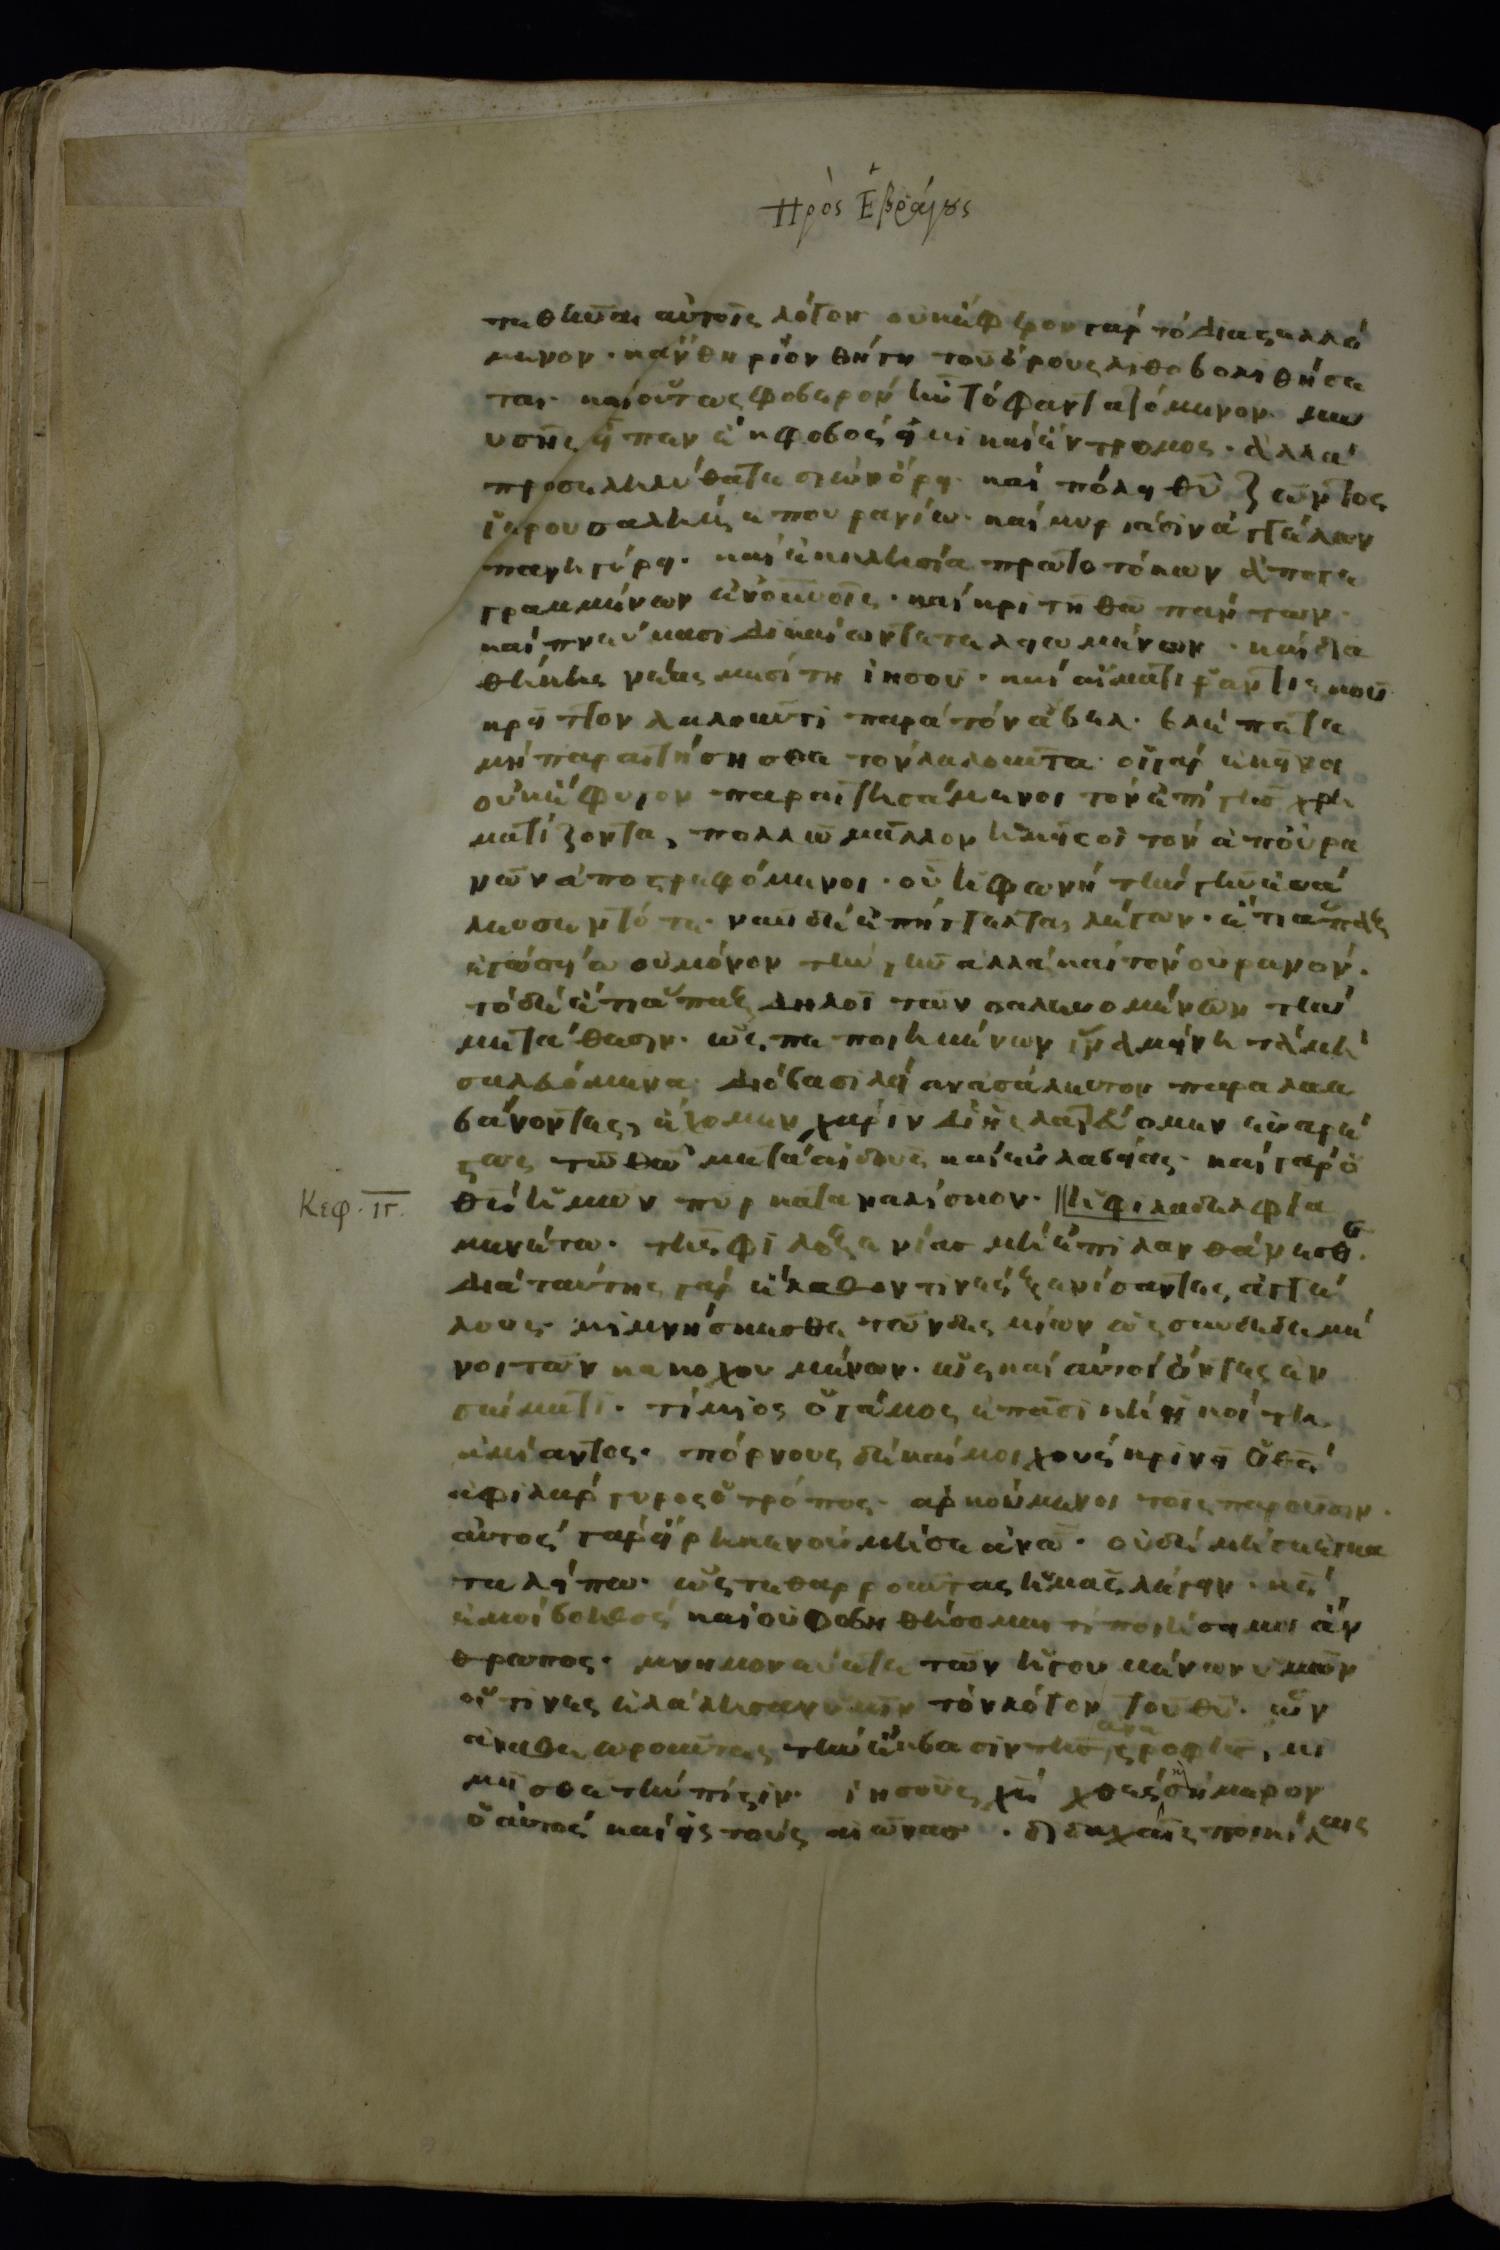 Πρὸς Ἑβραίους
τεθῆναι αὐτοῖς λόγον· οὐκ ἔφερον γὰρ τὸ διαστελλό
μενον· κἂν θηρίον θήγη τοῦ ὄρους λιθοβοληθήσε
ται· καὶ οὕτως φοβερὸν ἦν τὸ φανταζόμενον· μω
υσῆς εἶπεν ἔκφοβός εἰμι καὶ ἔντρομος· ἀλλὰ
προσεληλύθατε σιὼν ὄρει καὶ πόλει θῦ ζῶντος
ἱερουσαλὴμ ἐπουρανίω· καὶ μυριάσιν ἀγγέλων
πανηγύρει· καὶ ἐκκλησία πρωτοτόκων ἀπογε
γραμμένων ἐν οὐνοῖς· καὶ κριτῆ θῶ πάντων·
καὶ πνεύμασι δικαίων τετελειωμένων· καὶ δια
θήκης νέας μεσίτη ἰησοῦ· καὶ αἵματι ῥαντισμοῦ
κρεῖττον λαλοῦντι παρὰ τὸν ἄβελ· βλέπετε
μὴ παραιτήσησθε τὸν λαλοῦντα· οἱ γὰρ ἐκεῖνοι
οὐκ ἔφυγον παραιτησάμενοι τὸν ἐπὶ γῆς χρη
ματίζοντα, πολλῶ μᾶλλον ἡμεῖς οἱ τὸν ἀπ οὐρα
νῶν ἀποστρεφόμενοι· οὗ ἡ φωνὴ τὴν γῆν ἐσά
λευσεν τότε· νῦν δὲ ἐπήγγελται λέγων· ἔτι ἅπαξ
ἐγὼ σείω οὐ μόνον τὴν γῆν ἀλλὰ καὶ τὸν οὐρανόν·
τὸ δὲ ἔτι ἅπαξ δηλοῖ τῶν σαλευομένων τὴν
μετάθεσιν· ὡς πεποιημένων ἵνα μείνη τὰ μὴ
σαλευόμενα· διὸ βασιλείαν ἀσάλευτον παραλαμ
βάνοντες, ἔχομεν χάριν δι ἧς λατρεύομεν εὐαρέ
στως τῶ θεῶ μετὰ αἰδοῦς καὶ εὐλαβείας· καὶ γὰρ ὁ
Κεφ. ιγ.
θς ἡμῶν πῦρ καταναλίσκον· ἡ φιλαδελφία
μενέτω· τῆς φιλοξενίας μὴ ἐπιλανθάνεσθε·
διὰ ταύτης γὰρ ἔλαθον τινὲς ξενίσαντες ἀγγέ
λους· μιμνήσκεσθε τῶν δεσμίων ὡς συνδεδεμέ
νοι τῶν κακοχουμένων· ὡς καὶ αὐτοὶ ὄντες ἐν
σώματι· τίμιος ὁ γάμος ἐν πᾶσι καὶ ἡ κοίτη
ἀμίαντος· πόρνους δὲ καὶ μοιχοὺς κρινεῖ ὁ θς
ἀφιλάργυρος ὁ τρόπος· ἀρκούμενοι τοῖς παροῦσιν·
αὐτὸς γὰρ εἴρηκεν οὐ μή σε ἀνῶ· οὐδὲ μή σε ἐγκα
ταλείπω· ὥστε θαρροῦντας ἡμᾶς λέγειν· κς
ἐμοὶ βοηθὸς καὶ οὐ φοβηθήσομαι τί ποιήσει μοι ἄν
θρωπος· μνημονεύετε τῶν ἡγουμένων ὑμῶν
οἵτινες ἐλάλησαν ὑμῖν τὸν λόγον τοῦ θῦ· ὧν
ἀναθεωροῦντες τὴν ἔκβασιν τῆς ἀναστροφῆς, μι
μεῖσθε τὴν πίστιν· ἰησοῦς χς χθὲς καὶ σήμερον
ὁ αὐτὸς καὶ εἰς τοὺς αἰῶνας· διδαχαῖς ποικίλαις